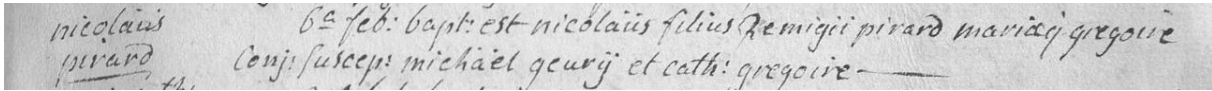 nicolaüs 6a feb: bapt: est nicolaüs filius Remigii pirard mariæ gregoire
pirard Conj: suscep: michaël geurÿ et cath: gregoire